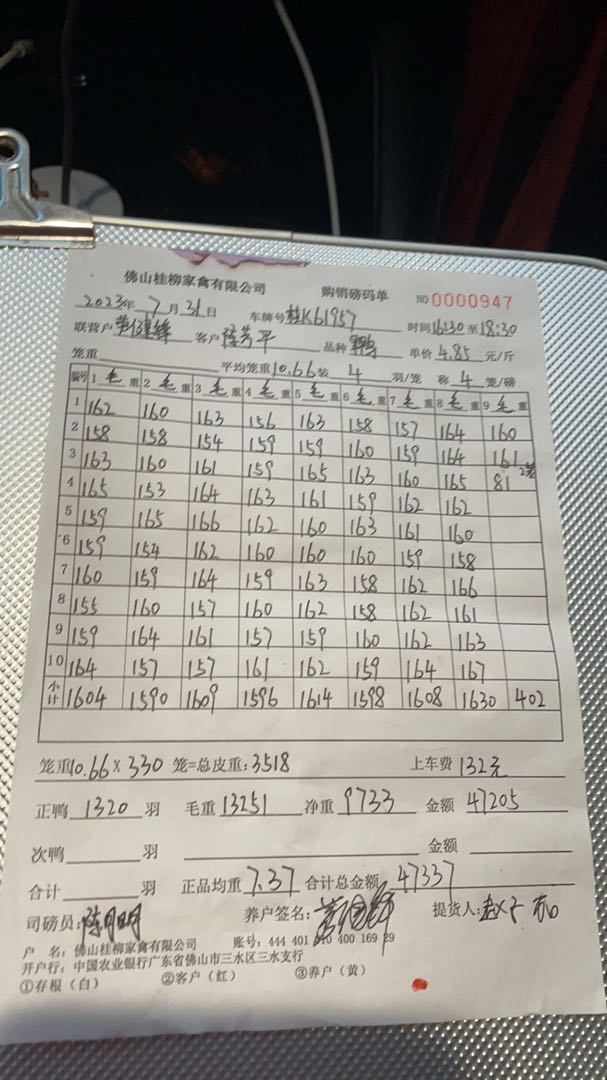 佛山桂柳家禽有限公司 购销磅码单 NO 0000947
2023年7月31日 车牌号桂K61957 时间16:30至18:30
联营户 客户 陆芳平 品种 鸭 单价 4.85 元/斤
笼重 平均笼重10.66装 4 羽/笼 称 4 笼/磅
编号 1 毛重 2 毛重 3 毛重 4 毛重 5 毛重 6 毛重 7 毛重 8 毛重 9 毛重
1 162 160 163 156 163 158 157 164 160
2 158 158 154 159 159 160 159 164 161
3 163 160 161 159 165 163 160 165 81 2笼
4 165 153 164 163 161 159 162 162
5 159 165 166 162 160 163 161 160
6 159 154 162 160 160 160 159 158
7 160 159 164 159 163 158 162 166
8 155 160 157 160 162 158 162 161
9 159 164 161 157 159 160 162 163
10 164 157 157 161 162 159 164 167
小计 1604 1590 1609 1596 1614 1598 1608 1630 402
笼重10.66×330 笼=总皮重:3518 上车费 132元
正鸭 1320 羽 毛重 13251 净重 9733 金额 47205
次鸭 羽 金额
合计 羽 正品均重 7.37 合计总金额 47337
司磅员: 陈月明 养户签名: 提货人:
户 名:佛山桂柳家禽有限公司 账号:444 401 010 400 169 29
开户行:中国农业银行广东省佛山市三水区三水支行
①存根(白) ②客户(红) ③养户(黄)